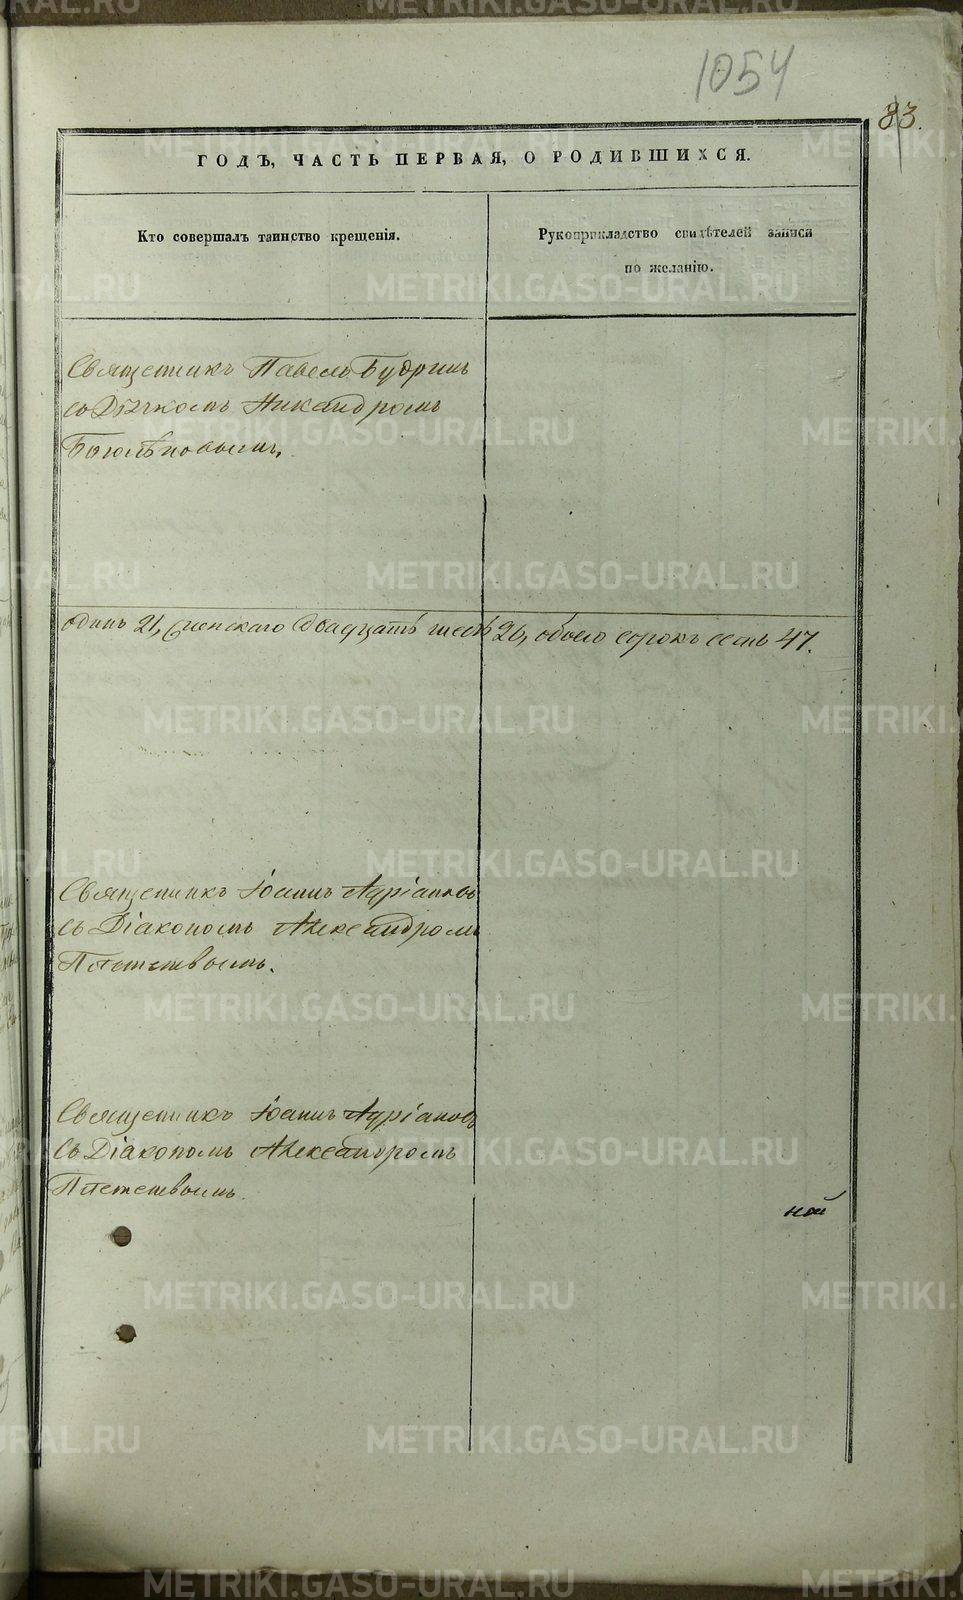 1054
83.
ГОДЪ, ЧАСТЬ ПЕРВАЯ, О РОДИВШИХСЯ.
Кто совершалъ таинство крещенія.
Рукоприкладство свидѣтелей записи
по желанію.
Священникъ Павелъ Будринъ
со Дьячкомъ Никандромъ
одинъ 21, женскаго двадцать шесть 26, обоего сорокъ семь 47.
Священникъ Іоаннъ Адріановъ
съ Діакономъ Александромъ
Священникъ Іоаннъ Адріановъ
Съ Діакономъ Александромъ
ной
METRIKI.GASO-URAL.RU